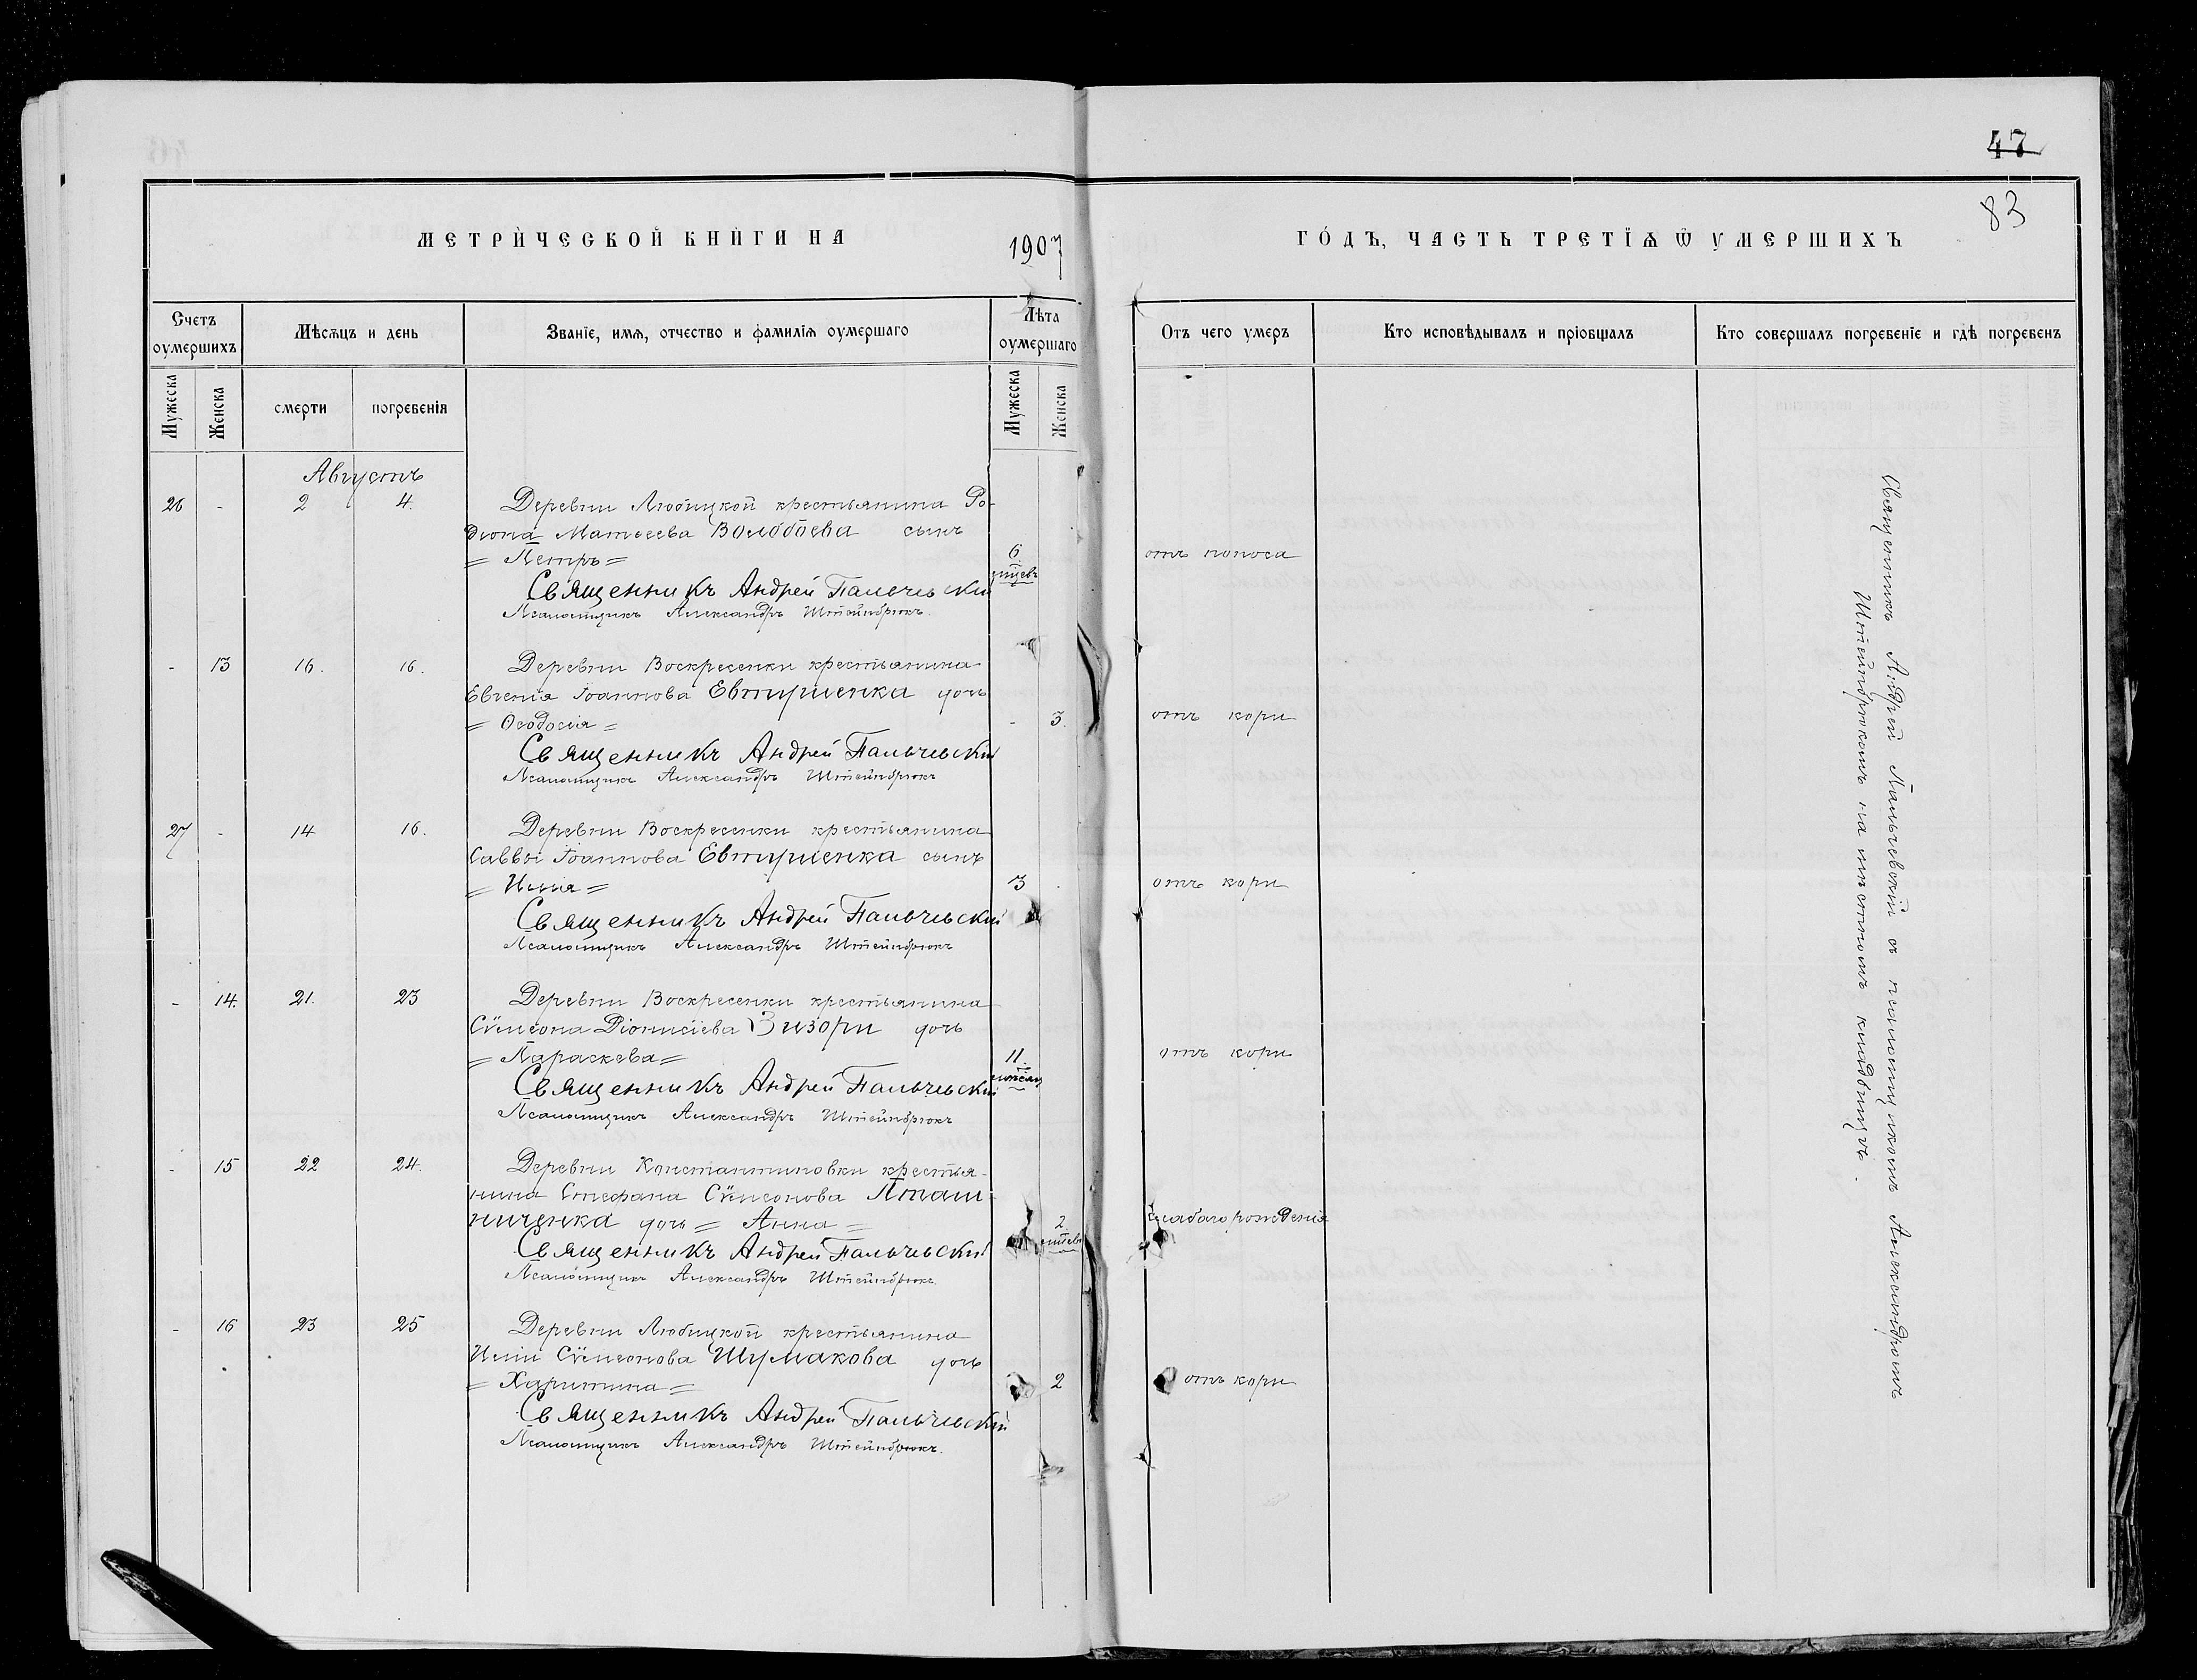 47
83
МЕТРИЧЕСКОЙ КНИГИ НА 1907 ГОДЪ, ЧАСТЬ ТРЕТІѦ Ѿ УМЕРШИХЪ
Счетъ оумершихъ
Мѣсѧцъ и день
Званіе, имѧ, отчество и фамиліѧ оумершаго
Лѣта оумершаго
Отъ чего умеръ
Кто исповѣдывалъ и пріобщалъ
Кто совершалъ погребеніе и гдѣ погребенъ
Мужеска
Женска
смерти
погребенія
Мужеска
Женска
Августъ
26 - 2 4. Деревни Любицкой крестьянина Ро-
діона Матѳеева Волобоева сынъ
= Петръ = 6 мцевъ отъ поноса
Священникъ Андрей Пальчевскій
Псаломщикъ Александръ Штейнбрюкъ.
- 13 16. 16. Деревни Воскресенки крестьянина
Евгенія Іоаннова Евтушенка дочь
= Ѳеодосія = - 3. отъ кори
Священникъ Андрей Пальчевскій
Псаломщикъ Александръ Штейнбрюкъ
27 - 14 16. Деревни Воскресенки крестьянина
Саввы Іоаннова Евтушенка сынъ
= Илія = 3 . отъ кори
Священникъ Андрей Пальчевскій
Псаломщикъ Александръ Штейнбрюкъ
- 14. 21. 23 Деревни Воскресенки крестьянина
Сѵмеона Діонисіева Зизори дочь
= Параскева = 11. отъ кори
Священникъ Андрей Пальчевскій
Псаломщикъ Александръ Штейнбрюкъ
- 15 22 24. Деревни Константиновки крестья-
нина Стефана Сѵмеонова Пташ-
ниченка дочь = Анна = 2 мцевъ слабаго рожденія
Священникъ Андрей Пальчевскій
Псаломщикъ Александръ Штейнбрюкъ.
- 16 23 25 Деревни Любицкой крестьянина
Иліи Сѵмеонова Шумакова дочь
= Харитина = 2 отъ кори
Священникъ Андрей Пальчевскій
Псаломщикъ Александръ Штейнбрюкъ.
Священникъ Андрей Пальчевскій съ псаломщикомъ Александромъ
Штейнбрюкомъ на мѣстномъ кладбищѣ.